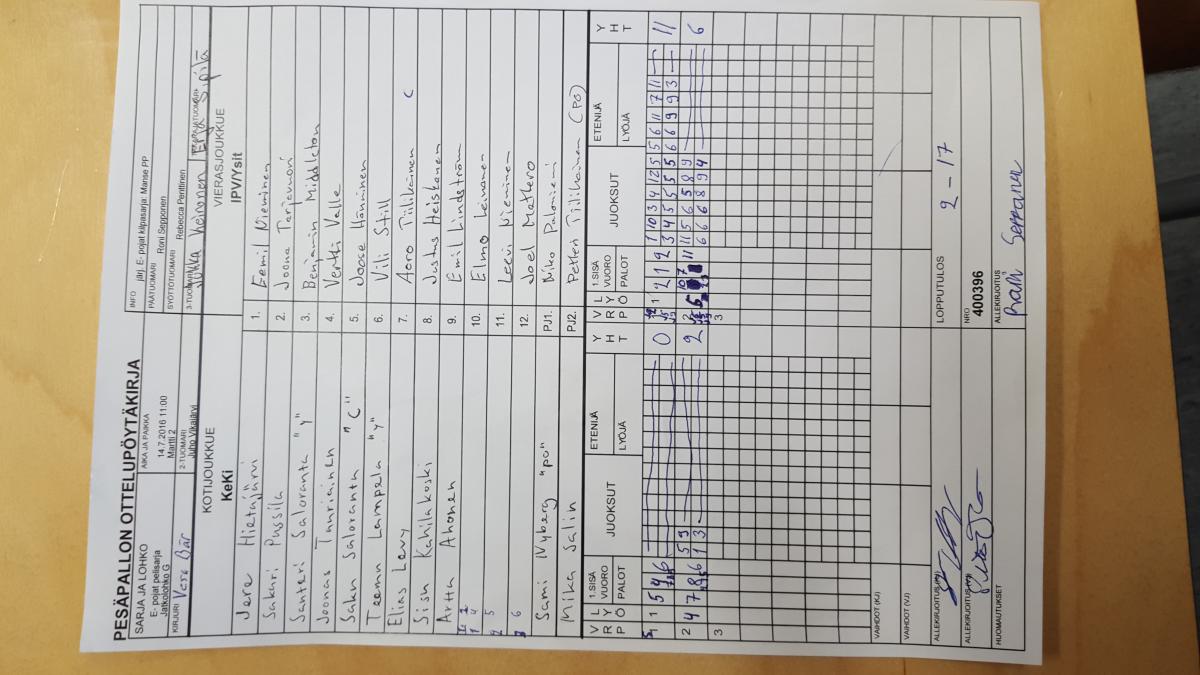 PESÄPALLON OTTELUPÖYTÄKIRJA
SARJA JA LOHKO
E- pojat pelisarja
Jatkolohko G
AIKA JA PAIKKA
14.7.2016 11:00
Martti 2
INFO järj. E- pojat kilpasarja: Manse PP
PÄÄTUOMARI Roni Sepponen
SYÖTTÖTUOMARI Rebecca Penttinen
KIRJURI Vera Bär
2-TUOMARI
Juho Vikajärvi
3-TUOMARI Jukka Heinonen
KOTIJOUKKUE
KeKi
VIERASJOUKKUE
IPV/Ysit
Jere Hietajärvi 1. Eemil Nieminen
Sakari Pussila 2. Joona Tarjamori
Santeri Saloranta "Y" 3. Benjamin Middleton
Joonas Tauriainen 4. Vertti Valle
Saku Saloranta "C" 5. Joose Hänninen
Teemu Lampela "Y" 6. Vili Still
Elias Levy 7. Aaro Tiilikainen C
Sisu Kahilakoski 8. Justus Heiskanen
Artta Ahonen 9. Emil Lindström
10. Elmo Leinonen
11. Leevi Nieminen
12. Joel Matkero
Sami Nyberg "po" PJ1. Niko Paloniemi
Mika Salin PJ2. Petteri Tiilikainen (PO)
V R P L Y Ö 1.SISÄ VUORO PALOT JUOKSUT ETENIJÄ LYÖJÄ Y H T
V R P L Y Ö 1.SISÄ VUORO PALOT JUOKSUT ETENIJÄ LYÖJÄ Y H T
1 5 4 6 0
1 2 1 2 1 10 3 4 12 5 5 6 11 7 11 11
3 4 5 5 5 5 6 6 9 9 3
2 4 7 8 6 5 9 2
6 1 3
2 11 11 5 6 5 8 9 6
6 6 6 8 9 4
3
3
VAIHDOT (KJ)
VAIHDOT (VJ)
ALLEKIRJOITUS
LOPPUTULOS 2 - 17
ALLEKIRJOITUS
NRO
400396
HUOMAUTUKSET
ALLEKIRJOITUS